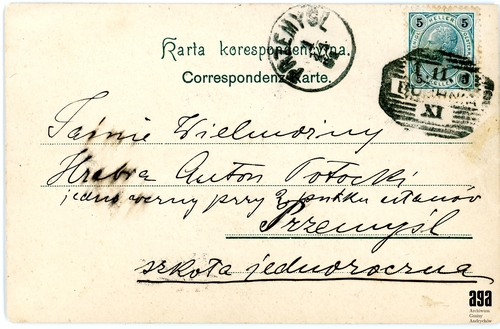 Karta korespondencyjna.
Correspondenz-Karte.
PRZEMYŚL
5 HELLER 5
XI
Jaśnie Wielmożny
Hrabia Anton Potocki
jednoroczny przy pułku ułanów
Przemyśl
szkoła jednoroczna
aga
Archiwum
Gminy
Andrychów